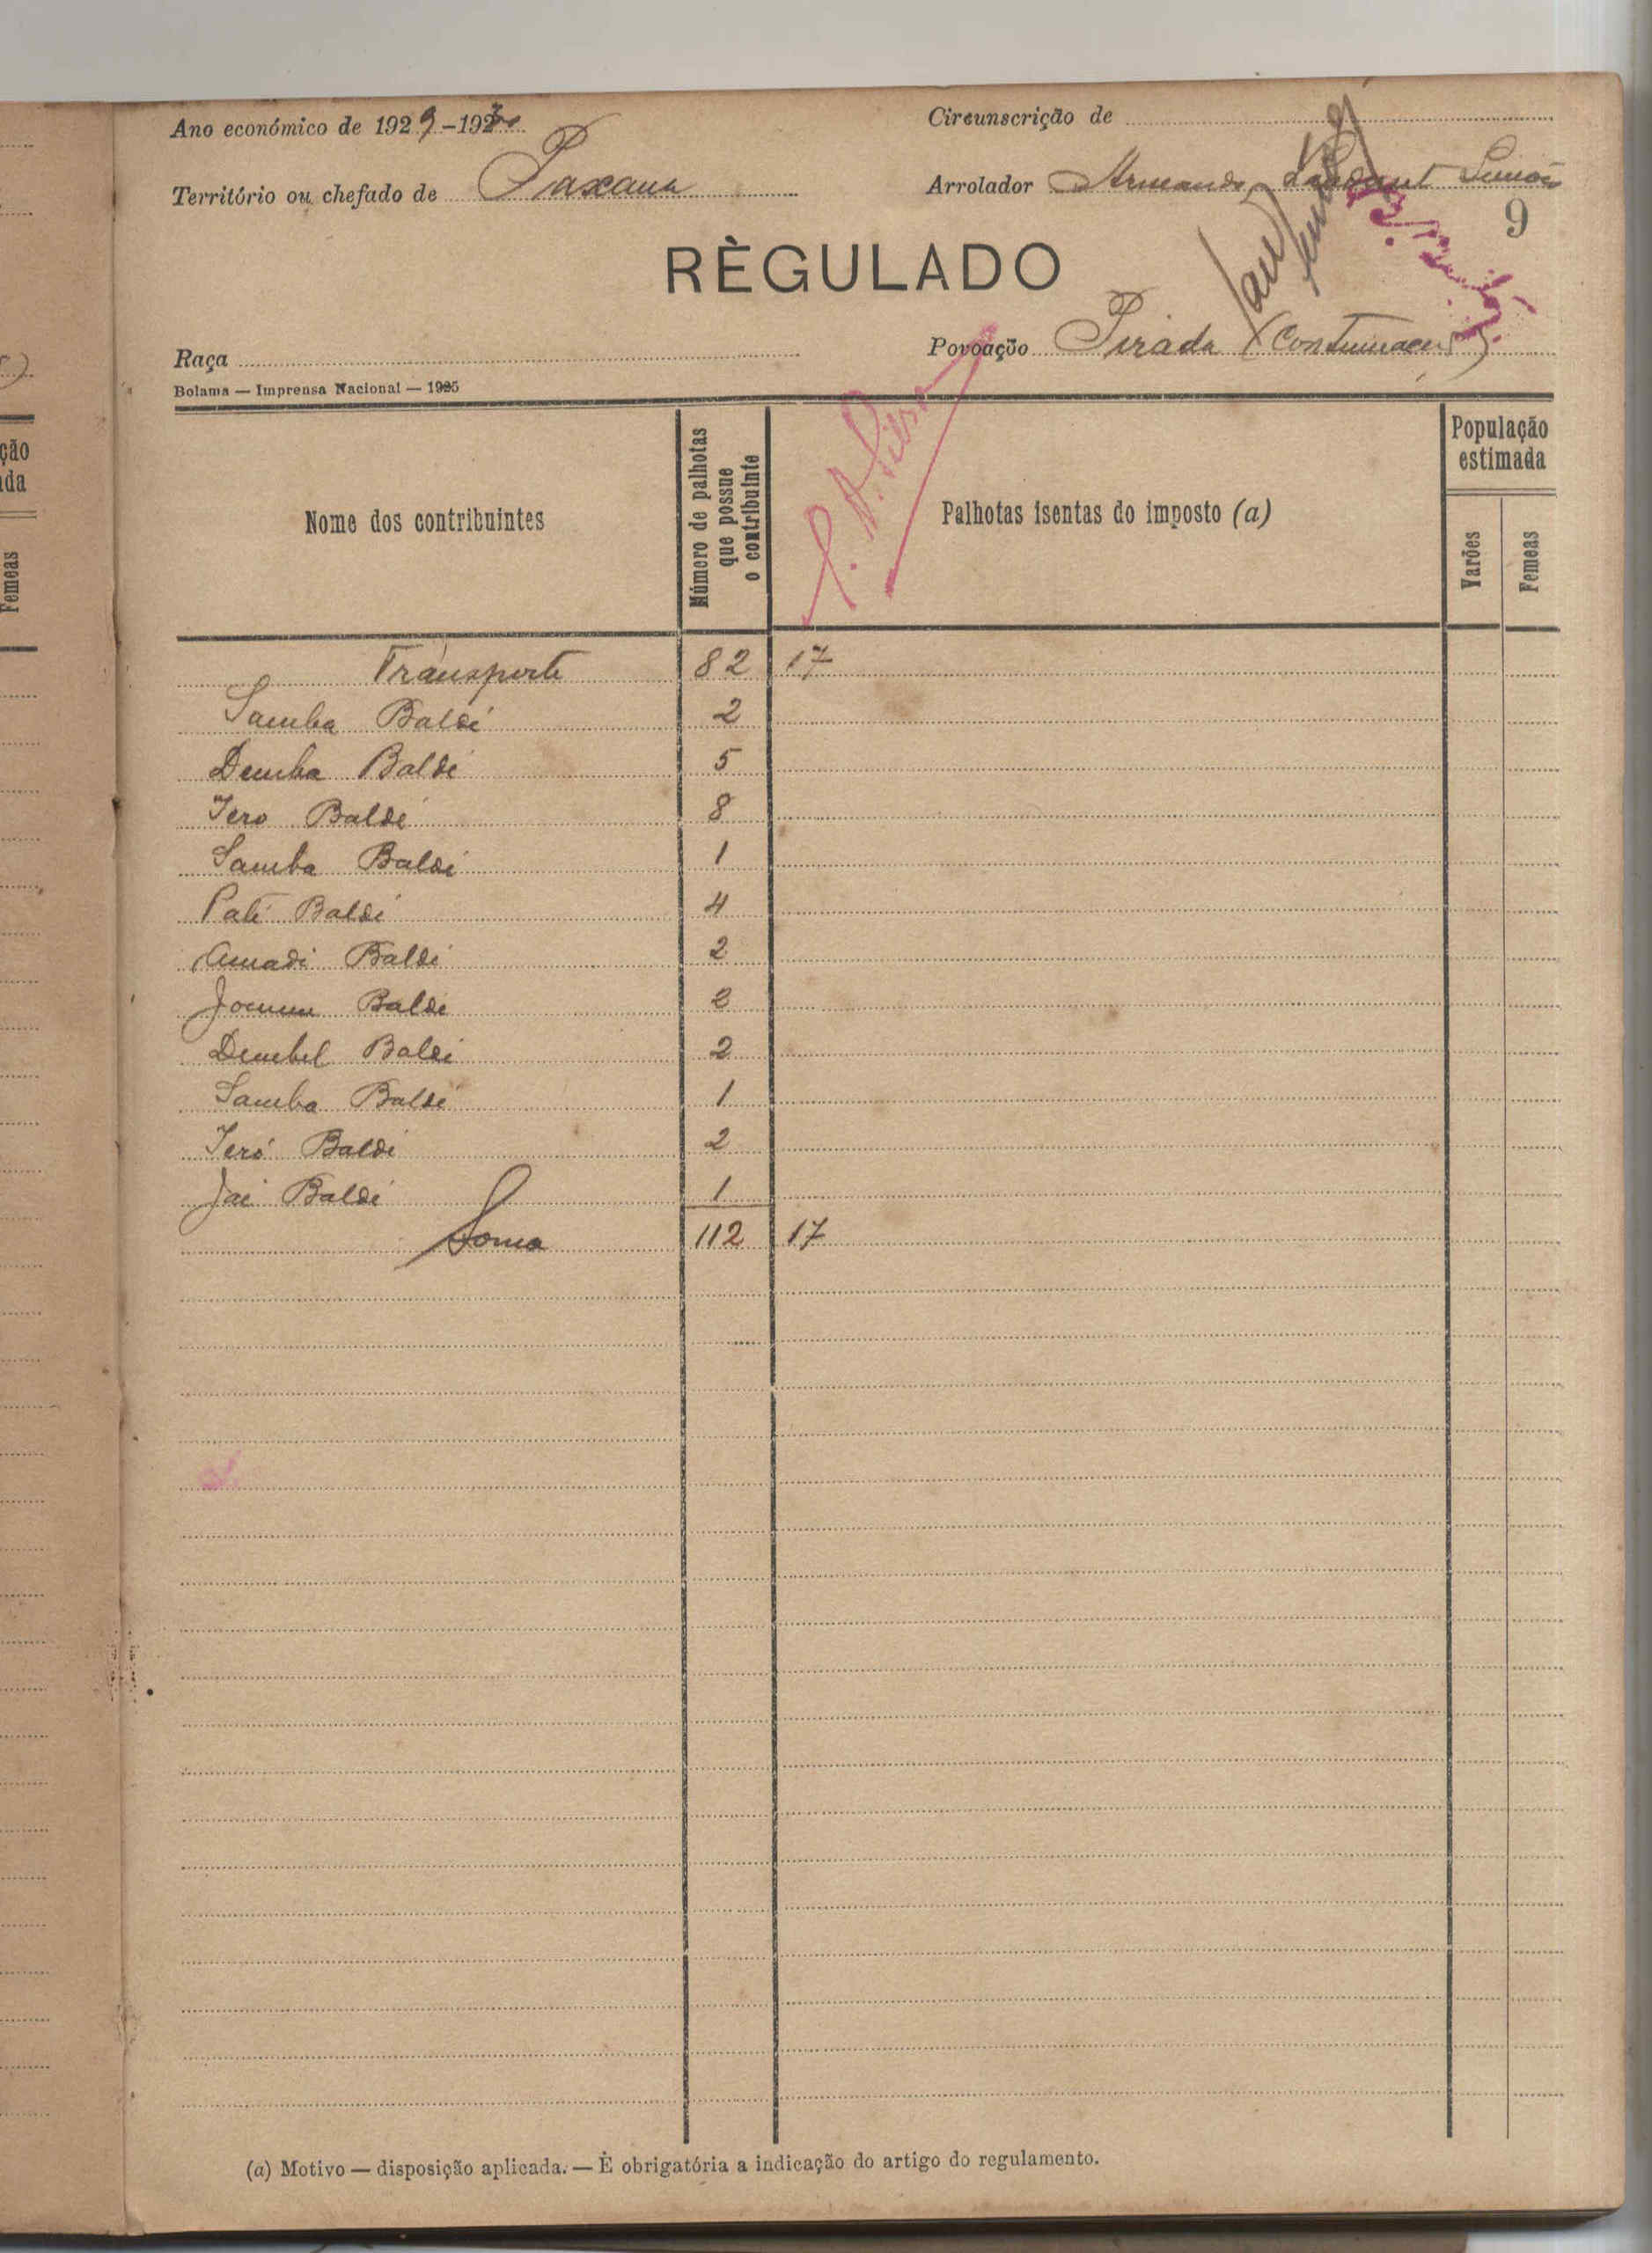 Ano económico de 1929-1930
Circunscrição de
Território ou chefado de Paxana
Arrolador Armando Simões
9
RÈGULADO
Raça
Povoação Pirada (Continuação)
Bolama — Imprensa Nacional — 1925
Nome dos contribuintes
Número de palhotas que possue o contribuinte
Palhotas isentas do imposto (a)
População estimada
Varões
Femeas
Transporte 82 17
Samba Baldé 2
Demba Baldé 5
Iero Baldé 8
Samba Baldé 1
Paté Baldé 4
Amadi Baldé 2
Baldé 2
Dembel Baldé 2
Samba Baldé 1
Ieró Baldé 2
Jai Baldé 1
Soma 112 17
(a) Motivo — disposição aplicada. — È obrigatória a indicação do artigo do regulamento.
ção
da
Femeas